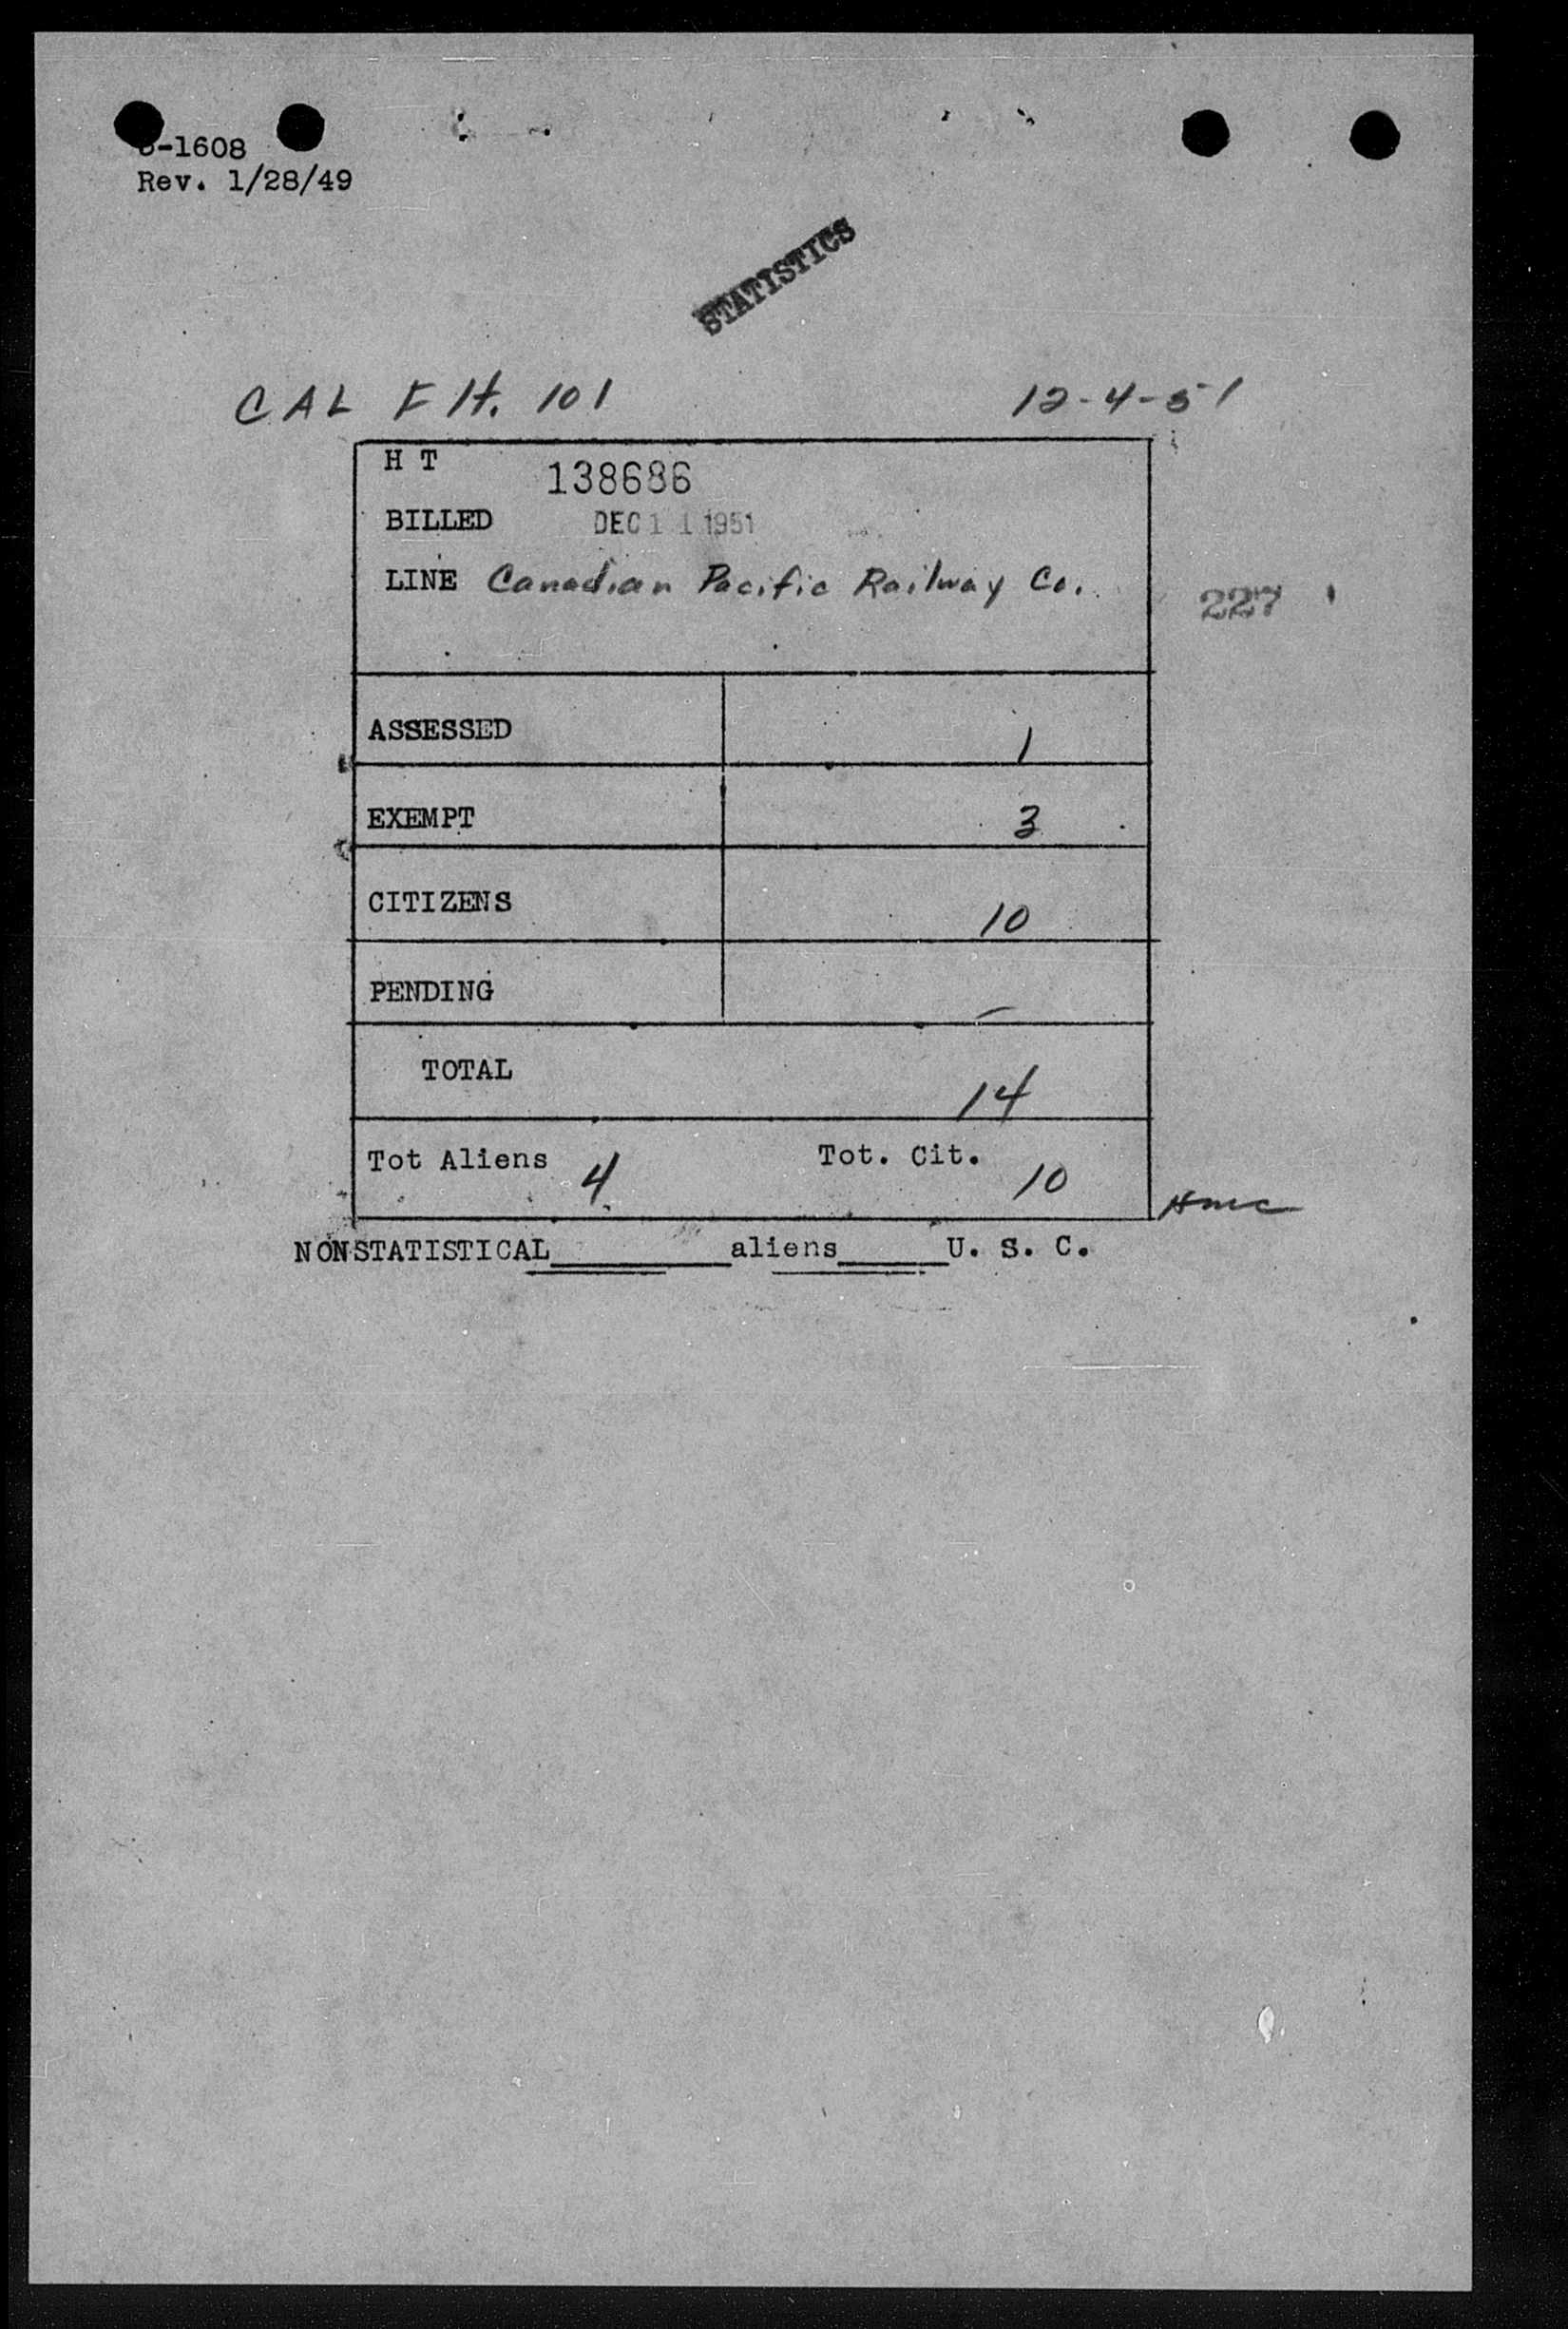 -1608
Rev. 1/28/49
STATISTICS
CAL Flt. 101 12-4-51
H T 138686
BILLED DEC 11 1951
LINE Canadian Pacific Railway Co.
227
ASSESSED 1
EXEMPT 3
CITIZENS 10
PENDING –
TOTAL 14
Tot Aliens 4 Tot. Cit. 10
HMC
NONSTATISTICAL________aliens_____U. S. C.